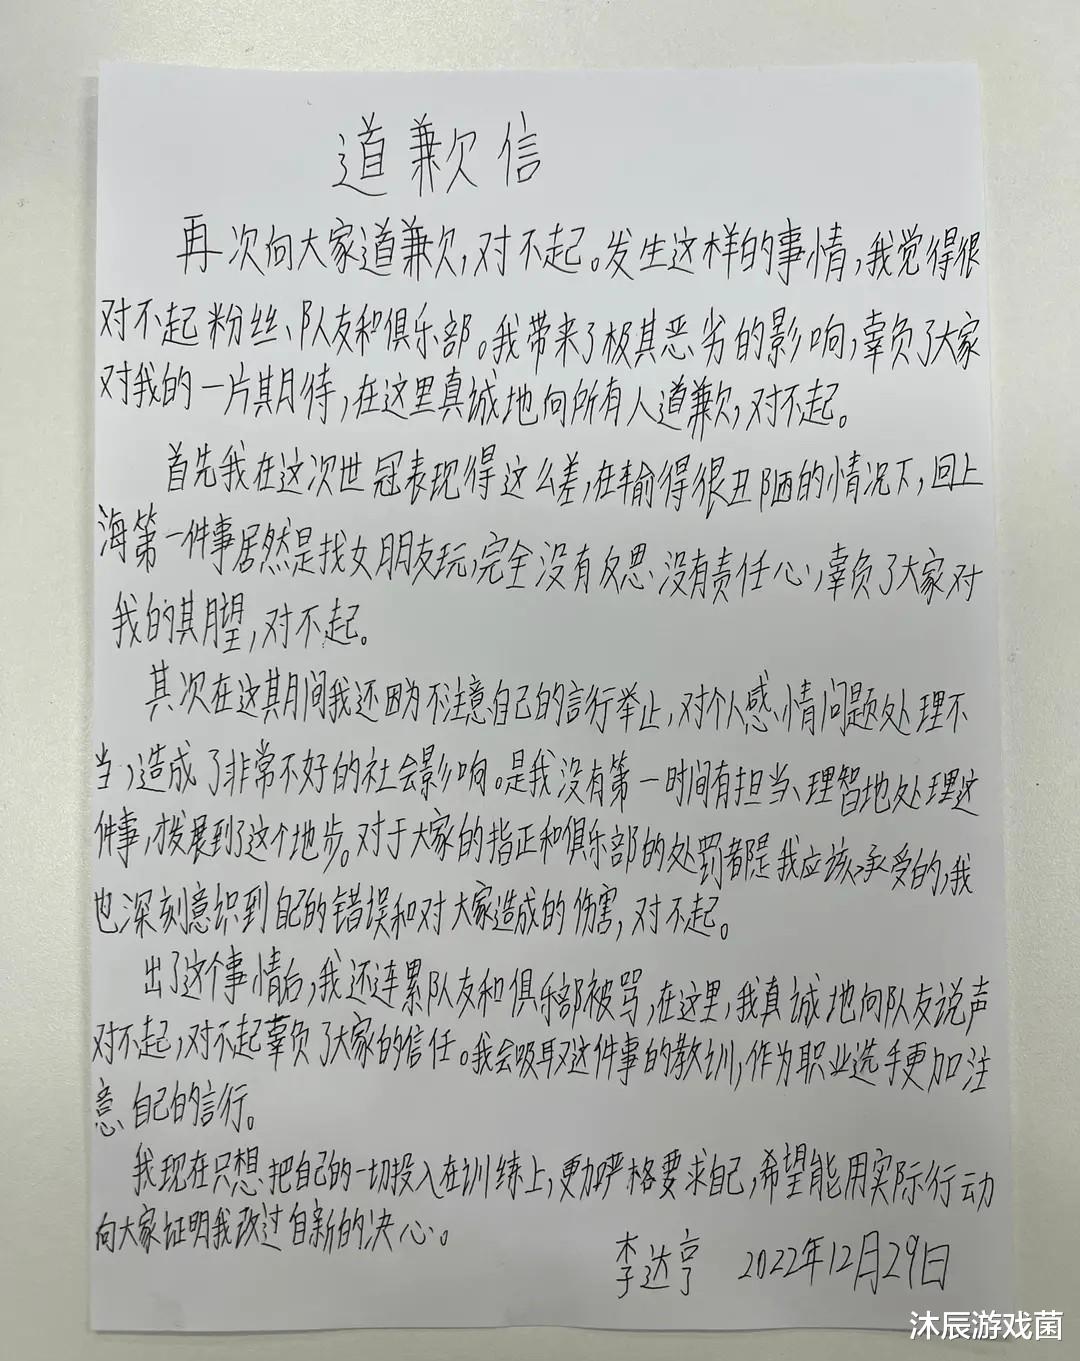 道歉信
再次向大家道歉，对不起。发生这样的事情，我觉得很
对不起粉丝、队友和俱乐部。我带来了极其恶劣的影响，辜负了大家
对我的一片期待，在这里真诚地向所有人道歉，对不起。
首先我在这次世冠表现得这么差，在输得很丑陋的情况下，回上
海第一件事居然是找女朋友玩，完全没有反思、没有责任心，辜负了大家对
我的期望，对不起。
其次在这期间我还因为不注意自己的言行举止，对个人感情问题处理不
当，造成了非常不好的社会影响。是我没有第一时间有担当、理智地处理这
件事，才发展到了这个地步。对于大家的指正和俱乐部的处罚都是我应该承受的，我
也深刻意识到自己的错误和对大家造成的伤害，对不起。
出了这个事情后，我还连累队友和俱乐部被骂，在这里，我真诚地向队友说声
对不起，对不起辜负了大家的信任。我会吸取这件事的教训，作为职业选手更加注
意自己的言行。
我现在只想把自己的一切投入在训练上，更加严格要求自己，希望能用实际行动
向大家证明我改过自新的决心。
李达亨 2022年12月29日
沐辰游戏菌